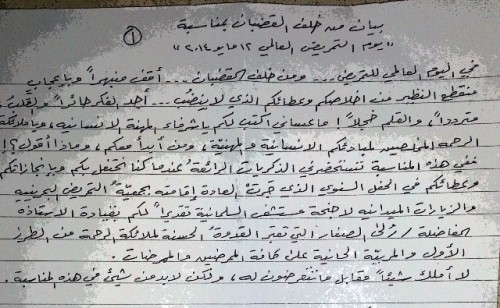 بيان من خلف القضبان بمناسبة
①
"يوم التمريض العالمي ١٢ مايو ٢٠١٤"
في اليوم العالمي للتمريض ... ومن خلف القضبان ... أقف منبهراً وبإعجاب
منقطع النظير من اخلاصكم وعطائكم الذي لا ينضب .. أجد الفكر حائراً والقلب
متردداً، والقلم خجلاً! ما عساني اكتب لكم يا شرفاء المهنة الانسانية، ويا ملائكة
الرحمة المخلصين لمبادئكم الانسانية والمهنية، ومن أبدأ معكم، وماذا أقول؟!
ففي هذه المناسبة تستحضرني الذكريات الرائعة عندما كنا نحتفل بكم وبإنجازاتكم
وعطائكم في الحفل السنوي الذي جرت العادة إقامته بجمعية التمريض البحرينية
والزيارات الميدانية لأجنحة مستشفى السلمانية تقديراً لكم بقيادة الاستاذة
الفاضلة / رولى الصفار التي تعتبر القدوة الحسنة لملائكة الرحمة من الطراز
الأول والمربية الحانية على كافة الممرضين والممرضات.
لا أملك شيئاً مقابل ما تتعرضون له، ولكن لابد من شيئ في هذه المناسبة.